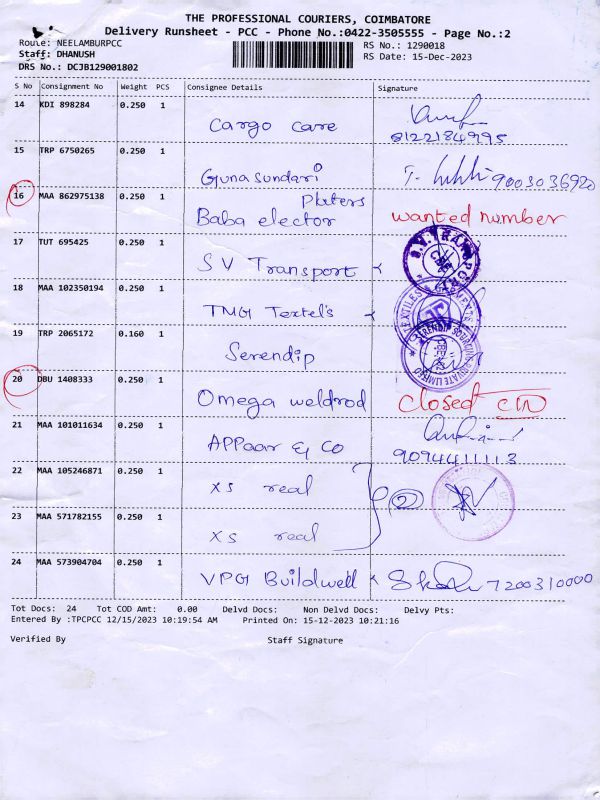 THE PROFESSIONAL COURIERS, COIMBATORE
Delivery Runsheet - PCC - Phone No.:0422-3505555 - Page No.:2
Route: NEELAMBURPCC RS No.: 1290018
Staff: DHANUSH RS Date: 15-Dec-2023
DRS No.: DCJB129001802
S No Consignment No Weight PCS Consignee Details Signature
14 KDI 898284 0.250 1
Cargo Care 8122184995
15 TRP 6750265 0.250 1
Gunasundari 9003036920
16 MAA 862975138 0.250 1 Platers
Baba elector wanted number
17 TUT 695425 0.250 1
SV Transport
18 MAA 102350194 0.250 1
TMG Textel's
19 TRP 2065172 0.160 1
Serendip
20 DBU 1408333 0.250 1
Omega weldrod closed
21 MAA 101011634 0.250 1
APPaar & Co 9094411113
22 MAA 105246871 0.250 1
XS real 2
23 MAA 571782155 0.250 1
XS real
24 MAA 573904704 0.250 1
VPG Buildwell 7200310000
Tot Docs: 24 Tot COD Amt: 0.00 Delvd Docs: Non Delvd Docs: Delvy Pts:
Entered By :TPCPCC 12/15/2023 10:19:54 AM Printed On: 15-12-2023 10:21:16
Verified By Staff Signature